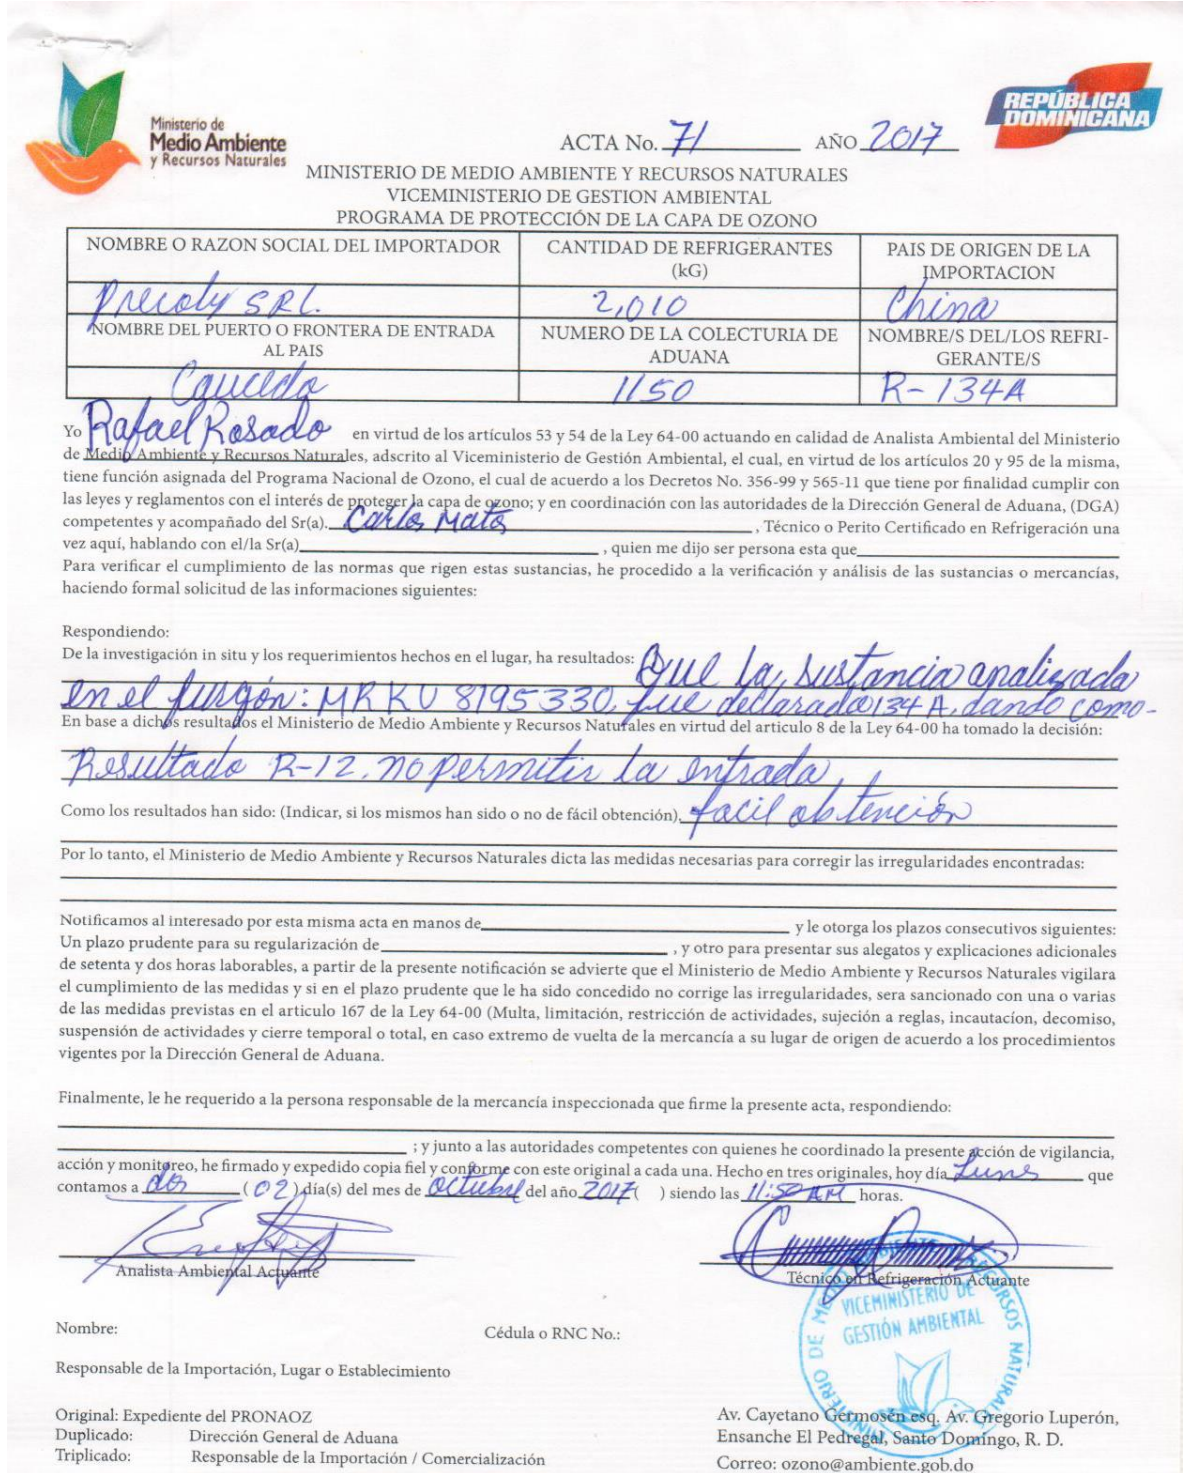 Ministerio de
Medio Ambiente
y Recursos Naturales
REPÚBLICA
DOMINICANA
ACTA No. 71 AÑO 2017
MINISTERIO DE MEDIO AMBIENTE Y RECURSOS NATURALES
VICEMINISTERIO DE GESTION AMBIENTAL
PROGRAMA DE PROTECCIÓN DE LA CAPA DE OZONO
NOMBRE O RAZON SOCIAL DEL IMPORTADOR CANTIDAD DE REFRIGERANTES (kG) PAIS DE ORIGEN DE LA IMPORTACION
Precoly SRL. 2,010 China
NOMBRE DEL PUERTO O FRONTERA DE ENTRADA AL PAIS NUMERO DE LA COLECTURIA DE ADUANA NOMBRE/S DEL/LOS REFRI-GERANTE/S
Caucedo 1150 R-134A
Yo Rafael Rosado en virtud de los artículos 53 y 54 de la Ley 64-00 actuando en calidad de Analista Ambiental del Ministerio
de Medio Ambiente y Recursos Naturales, adscrito al Viceministerio de Gestión Ambiental, el cual, en virtud de los artículos 20 y 95 de la misma,
tiene función asignada del Programa Nacional de Ozono, el cual de acuerdo a los Decretos No. 356-99 y 565-11 que tiene por finalidad cumplir con
las leyes y reglamentos con el interés de proteger la capa de ozono; y en coordinación con las autoridades de la Dirección General de Aduana, (DGA)
competentes y acompañado del Sr(a). Carlos Matos , Técnico o Perito Certificado en Refrigeración una
vez aquí, hablando con el/la Sr(a) , quien me dijo ser persona esta que
Para verificar el cumplimiento de las normas que rigen estas sustancias, he procedido a la verificación y análisis de las sustancias o mercancías,
haciendo formal solicitud de las informaciones siguientes:
Respondiendo:
De la investigación in situ y los requerimientos hechos en el lugar, ha resultados: Que la sustancia analizada
en el furgón: MRKU 8195330, fue declarada 134A, dando como-
En base a dichos resultados el Ministerio de Medio Ambiente y Recursos Naturales en virtud del articulo 8 de la Ley 64-00 ha tomado la decisión:
Resultado R-12. no permitir la entrada,
Como los resultados han sido: (Indicar, si los mismos han sido o no de fácil obtención). facil obtención
Por lo tanto, el Ministerio de Medio Ambiente y Recursos Naturales dicta las medidas necesarias para corregir las irregularidades encontradas:
Notificamos al interesado por esta misma acta en manos de y le otorga los plazos consecutivos siguientes:
Un plazo prudente para su regularización de , y otro para presentar sus alegatos y explicaciones adicionales
de setenta y dos horas laborables, a partir de la presente notificación se advierte que el Ministerio de Medio Ambiente y Recursos Naturales vigilara
el cumplimiento de las medidas y si en el plazo prudente que le ha sido concedido no corrige las irregularidades, sera sancionado con una o varias
de las medidas previstas en el articulo 167 de la Ley 64-00 (Multa, limitación, restricción de actividades, sujeción a reglas, incautacíon, decomiso,
suspensión de actividades y cierre temporal o total, en caso extremo de vuelta de la mercancía a su lugar de origen de acuerdo a los procedimientos
vigentes por la Dirección General de Aduana.
Finalmente, le he requerido a la persona responsable de la mercancía inspeccionada que firme la presente acta, respondiendo:
; y junto a las autoridades competentes con quienes he coordinado la presente acción de vigilancia,
acción y monitoreo, he firmado y expedido copia fiel y conforme con este original a cada una. Hecho en tres originales, hoy día Lunes que
contamos a dos (02) día(s) del mes de octubre del año 2017( ) siendo las 11:50 AM horas.
Analista Ambiental Actuante
Técnico en Refrigeración Actuante
MINISTERIO DE MEDIO AMBIENTE Y RECURSOS NATURALES
VICEMINISTERIO DE
GESTIÓN AMBIENTAL
Nombre:
Cédula o RNC No.:
Responsable de la Importación, Lugar o Establecimiento
Original: Expediente del PRONAOZ
Duplicado: Dirección General de Aduana
Triplicado: Responsable de la Importación / Comercialización
Av. Cayetano Germosén esq. Av. Gregorio Luperón,
Ensanche El Pedregal, Santo Domingo, R. D.
Correo: ozono@ambiente.gob.do